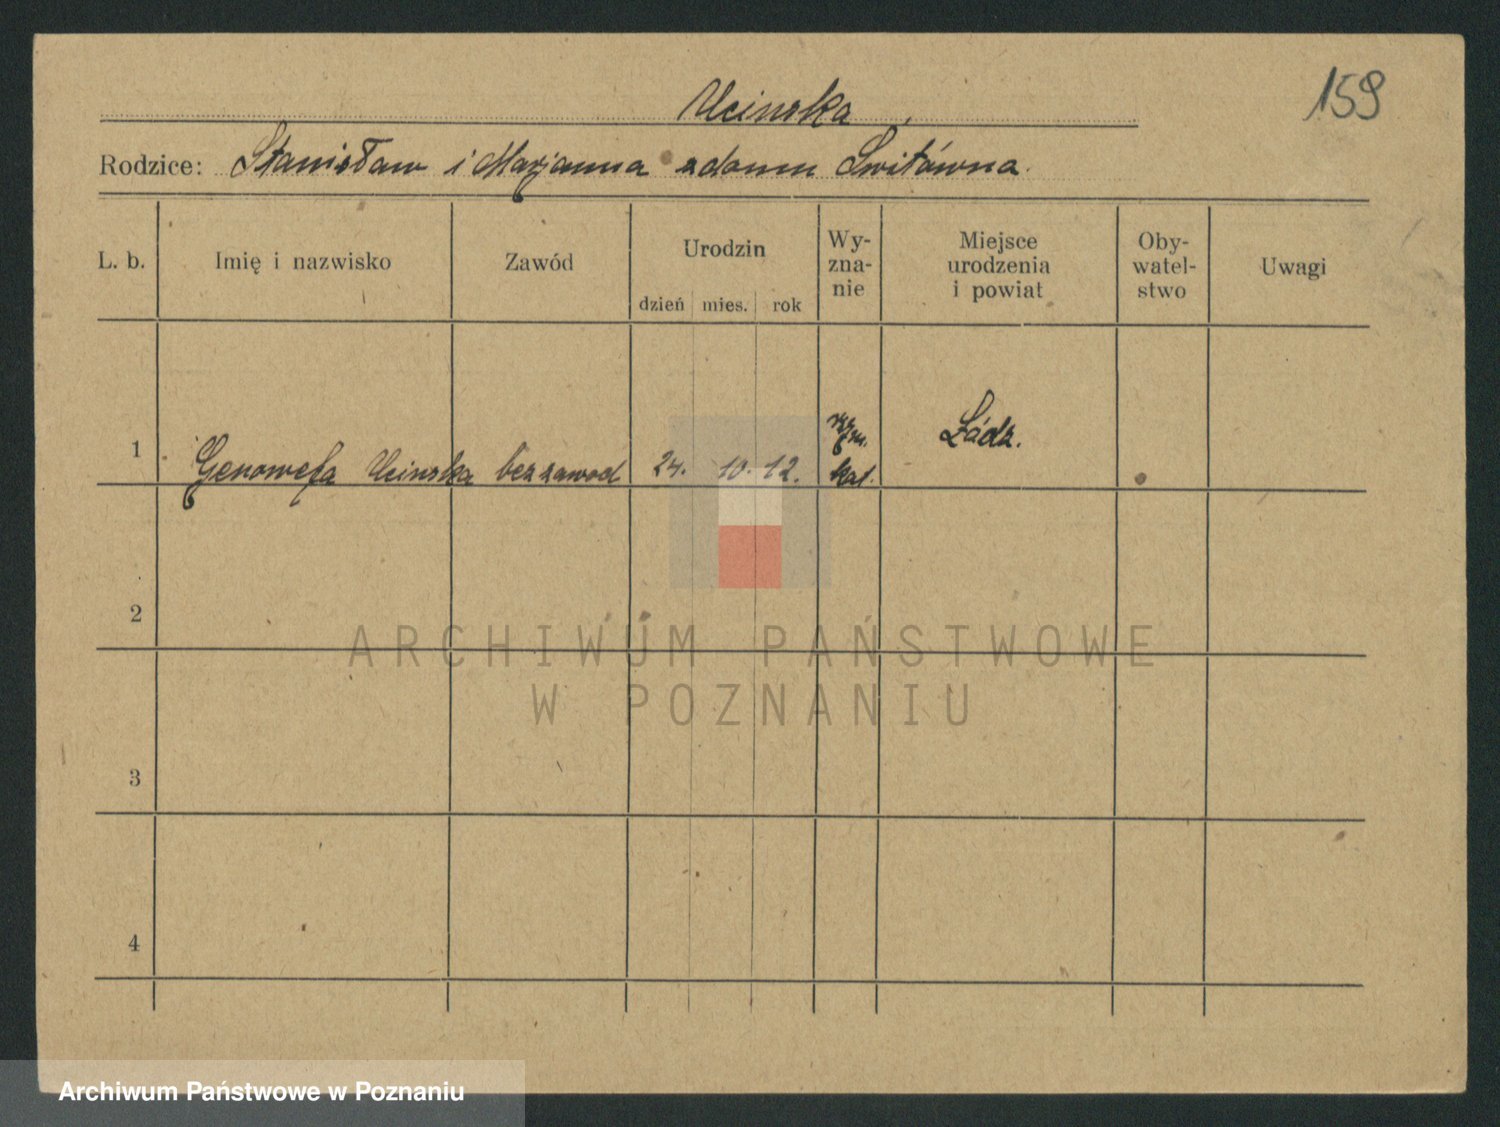 159
Ucinska
Rodzice: Stanisław i Marjanna z domu Switówna.
L. b.
Imię i nazwisko
Zawód
Urodzin
dzień mies. rok
Wy-
zna-
nie
Miejsce
urodzenia
i powiat
Oby-
watel-
stwo
Uwagi
1
Genowefa Ucinska
bez zawod
24. 10. 12.
rzym.
kat.
Łódz.
2
3
4
ARCHIWUM PAŃSTWOWE
W POZNANIU
Archiwum Państwowe w Poznaniu